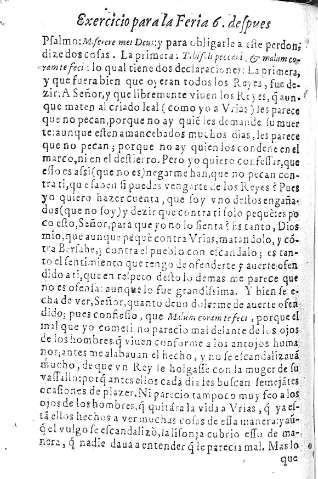 Exercicio para la Feria 6. despues
Psalmo: Miserere mei Deus: y para obligarle a este perdon,
dize dos cosas. La primera: Tibi soli peccavi, & malum co-
ram te feci: lo qual tiene dos declaraciones: La primera,
y que fuera bien que oyeran todos los Reyes, fue de-
zir: A Señor, y que libremente viven los Reyes, q̃ aun-
que maten al criado leal (como yo a Vrias) les parece
que no pecan, porque no ay quiẽ les demande su muer
te: aunque esten amancebados muchos dias, les parece
que no pecan; porque no ay quien los condene en el
marco, ni en el destierro. Pero yo quiero confessar, que
esto es assi (que no es) negarme han, que no pecan con-
tra ti, que sabes si puedes vengarte de los Reyes? Pues
yo quiero hazer cuenta, que soy vno destos engaña-
dos (que no soy) y dezir que contra ti solo pequè: es po
co esto, Señor, para que yo no lo sienta? Es tanto, Dios
mio, que aunque pequè contra Vrias, matandolo, y cõ-
tra Bersabe; contra el pueblo con escandalo; es tan-
to el sentimiento que tengo de ofenderte y averte ofen
dido a ti, que en respeto desto lo demas me parece que
no es ofensa: aunque lo fue grandissima. Y bien se e-
cha de ver, Señor, quanto devn dolerme de averte ofen
dido; pues confiesso, que Malum coram te feci, porque el
mal que yo cometi no parecio mal delante de los ojos
de los hombres, q̃ viven conforme a los antojos huma
nos; antes me alababan el hecho, y no se escandalizavã
mucho, de que vn Rey se holgasse con la muger de su
vassallo: porq̃ antes ellos cada dia les buscan semejãtes
ocasiones de plazer. Ni parecio tampoco muy feo a los
ojos de los hombres, q̃ quitàra la vida a Vrias, q̃ ya es-
tã ellos hechos a ver muchas cosas de essa manera: y aun-
q̃ el vulgo se escandalizò, la lisonja cubrio esso de ma-
nera, q̃ nadie dava a entender q̃ le parecia mal. Mas lo
que